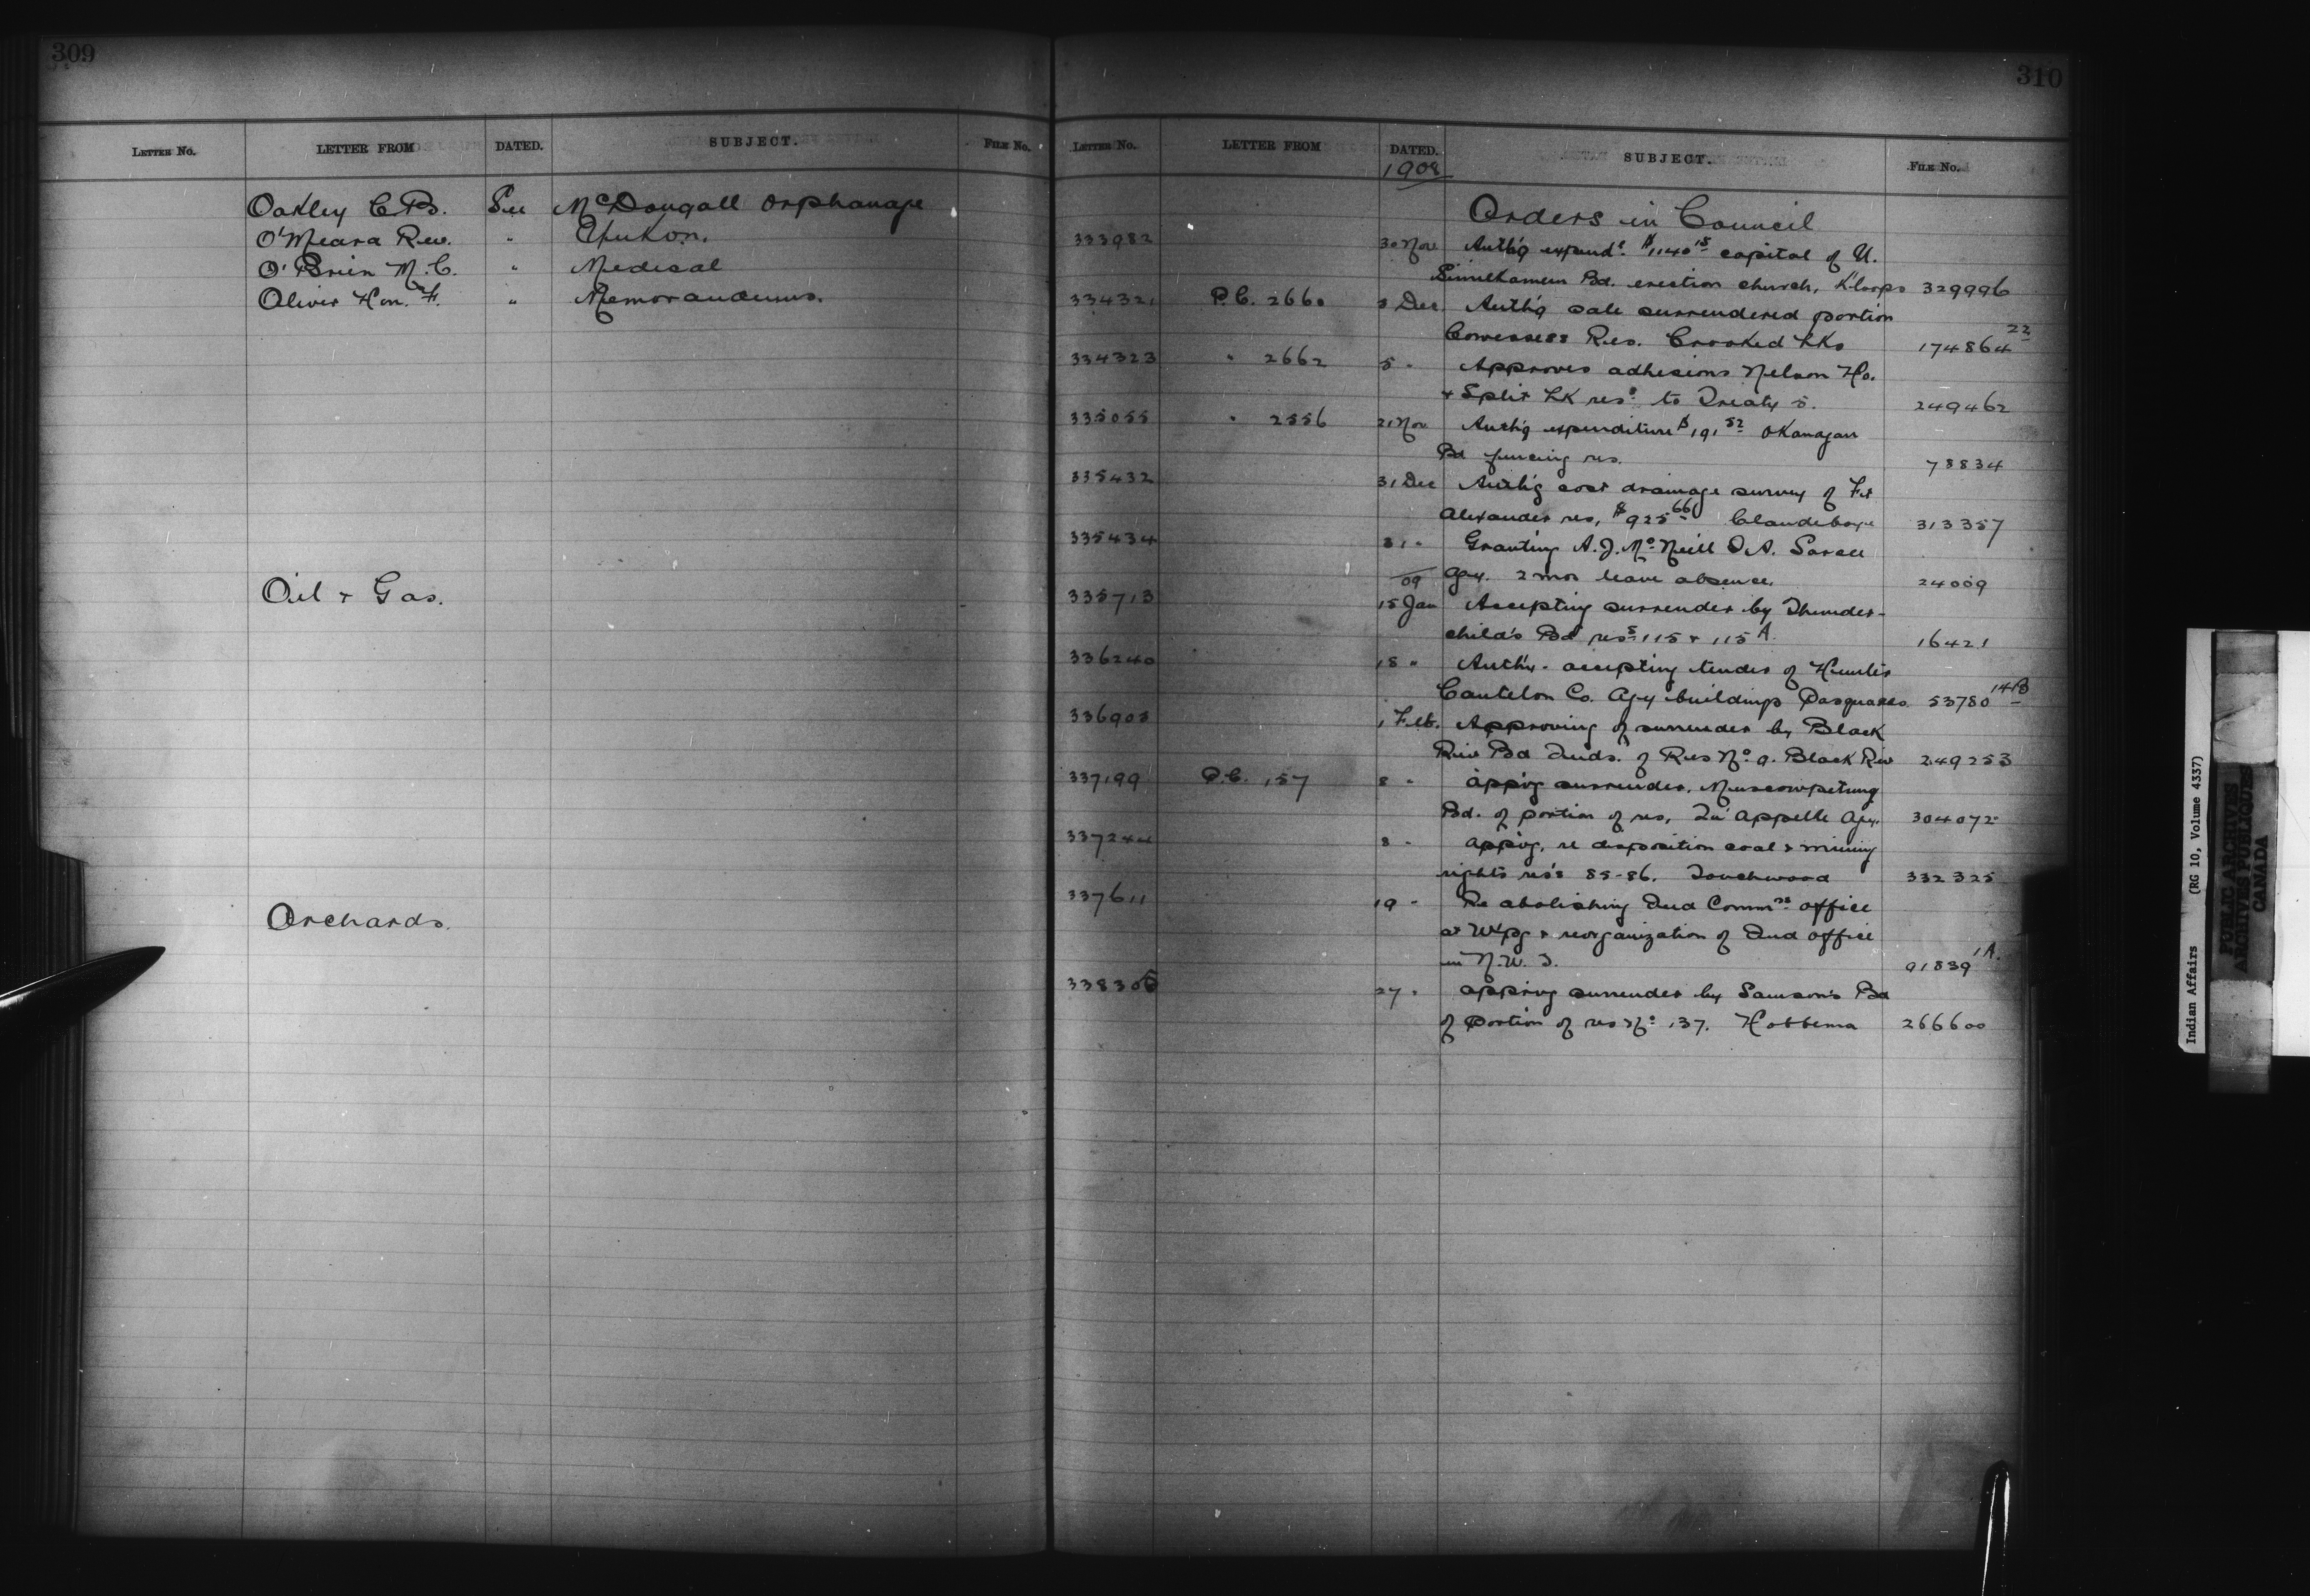 309
LETTER NO. LETTER FROM DATED. SUBJECT. FILE NO.
Oakley C.B. See McDougall Orphanage
O'Meara Rev. " Yukon.
O'Brien M.C. " Medical
Oliver Hon. F. " Memorandums.
Oil & Gas.
Orchards.
310
LETTER NO. LETTER FROM DATED. SUBJECT. FILE NO.
1908
Orders in Council
333982 30 Nov Auth'g expend. $1140 15 capital of U.
Similkameen Bd. erection church, K'loops 329996
334321 P.C. 2660 3 Dec. Auth'g sale surrendered portion
Cowessess Res. Crooked Lks 174864 22
334323 " 2662 5 " Approves adhesions Nelson Ho.
& Split Lk res. to Treaty 5. 249462
335055 " 2556 21 Nov Auth'g expenditure $191 52 Okanagan
Bd fencing res. 78834
335432 31 Dec Auth'g cost drainage survey of Ft
Alexander res, $925 66 Clandeboye 313357
335434 31 " Granting A.J. McNeill I.A. Sarcee
Agy. 2 mos leave absence. 24009
09
335713 15 Jan Accepting surrender by Thunder-
child's Bd res 115 & 115 A. 16421
336240 18 " Auth'y. accepting tender of Hunter
Cantelon Co. Agy buildings Pasquahs. 53780 14B
336903 1 Feb. Approving of surrender by Black
Riv Bd Inds. of Res No. 9. Black Riv 249253
337199 P.C. 157 8 " app'vg surrender, Muscowpetung
Bd. of portion of res, Qu'Appelle Agy. 304072
337244 8 " app'vg, re disposition coal & mining
rights res's 85-86. Touchwood 332325
337611 19 " Re abolishing Ind Commrs office
at W'pg & reorganization of Ind office
in N.W.T. 91839 1A.
338305 27 " app'vg surrender by Samson's Bd
of portion of res No. 137. Hobbema 266600
Indian Affairs (RG 10, Volume 4337)
PUBLIC ARCHIVES
ARCHIVES PUBLIQUES
CANADA